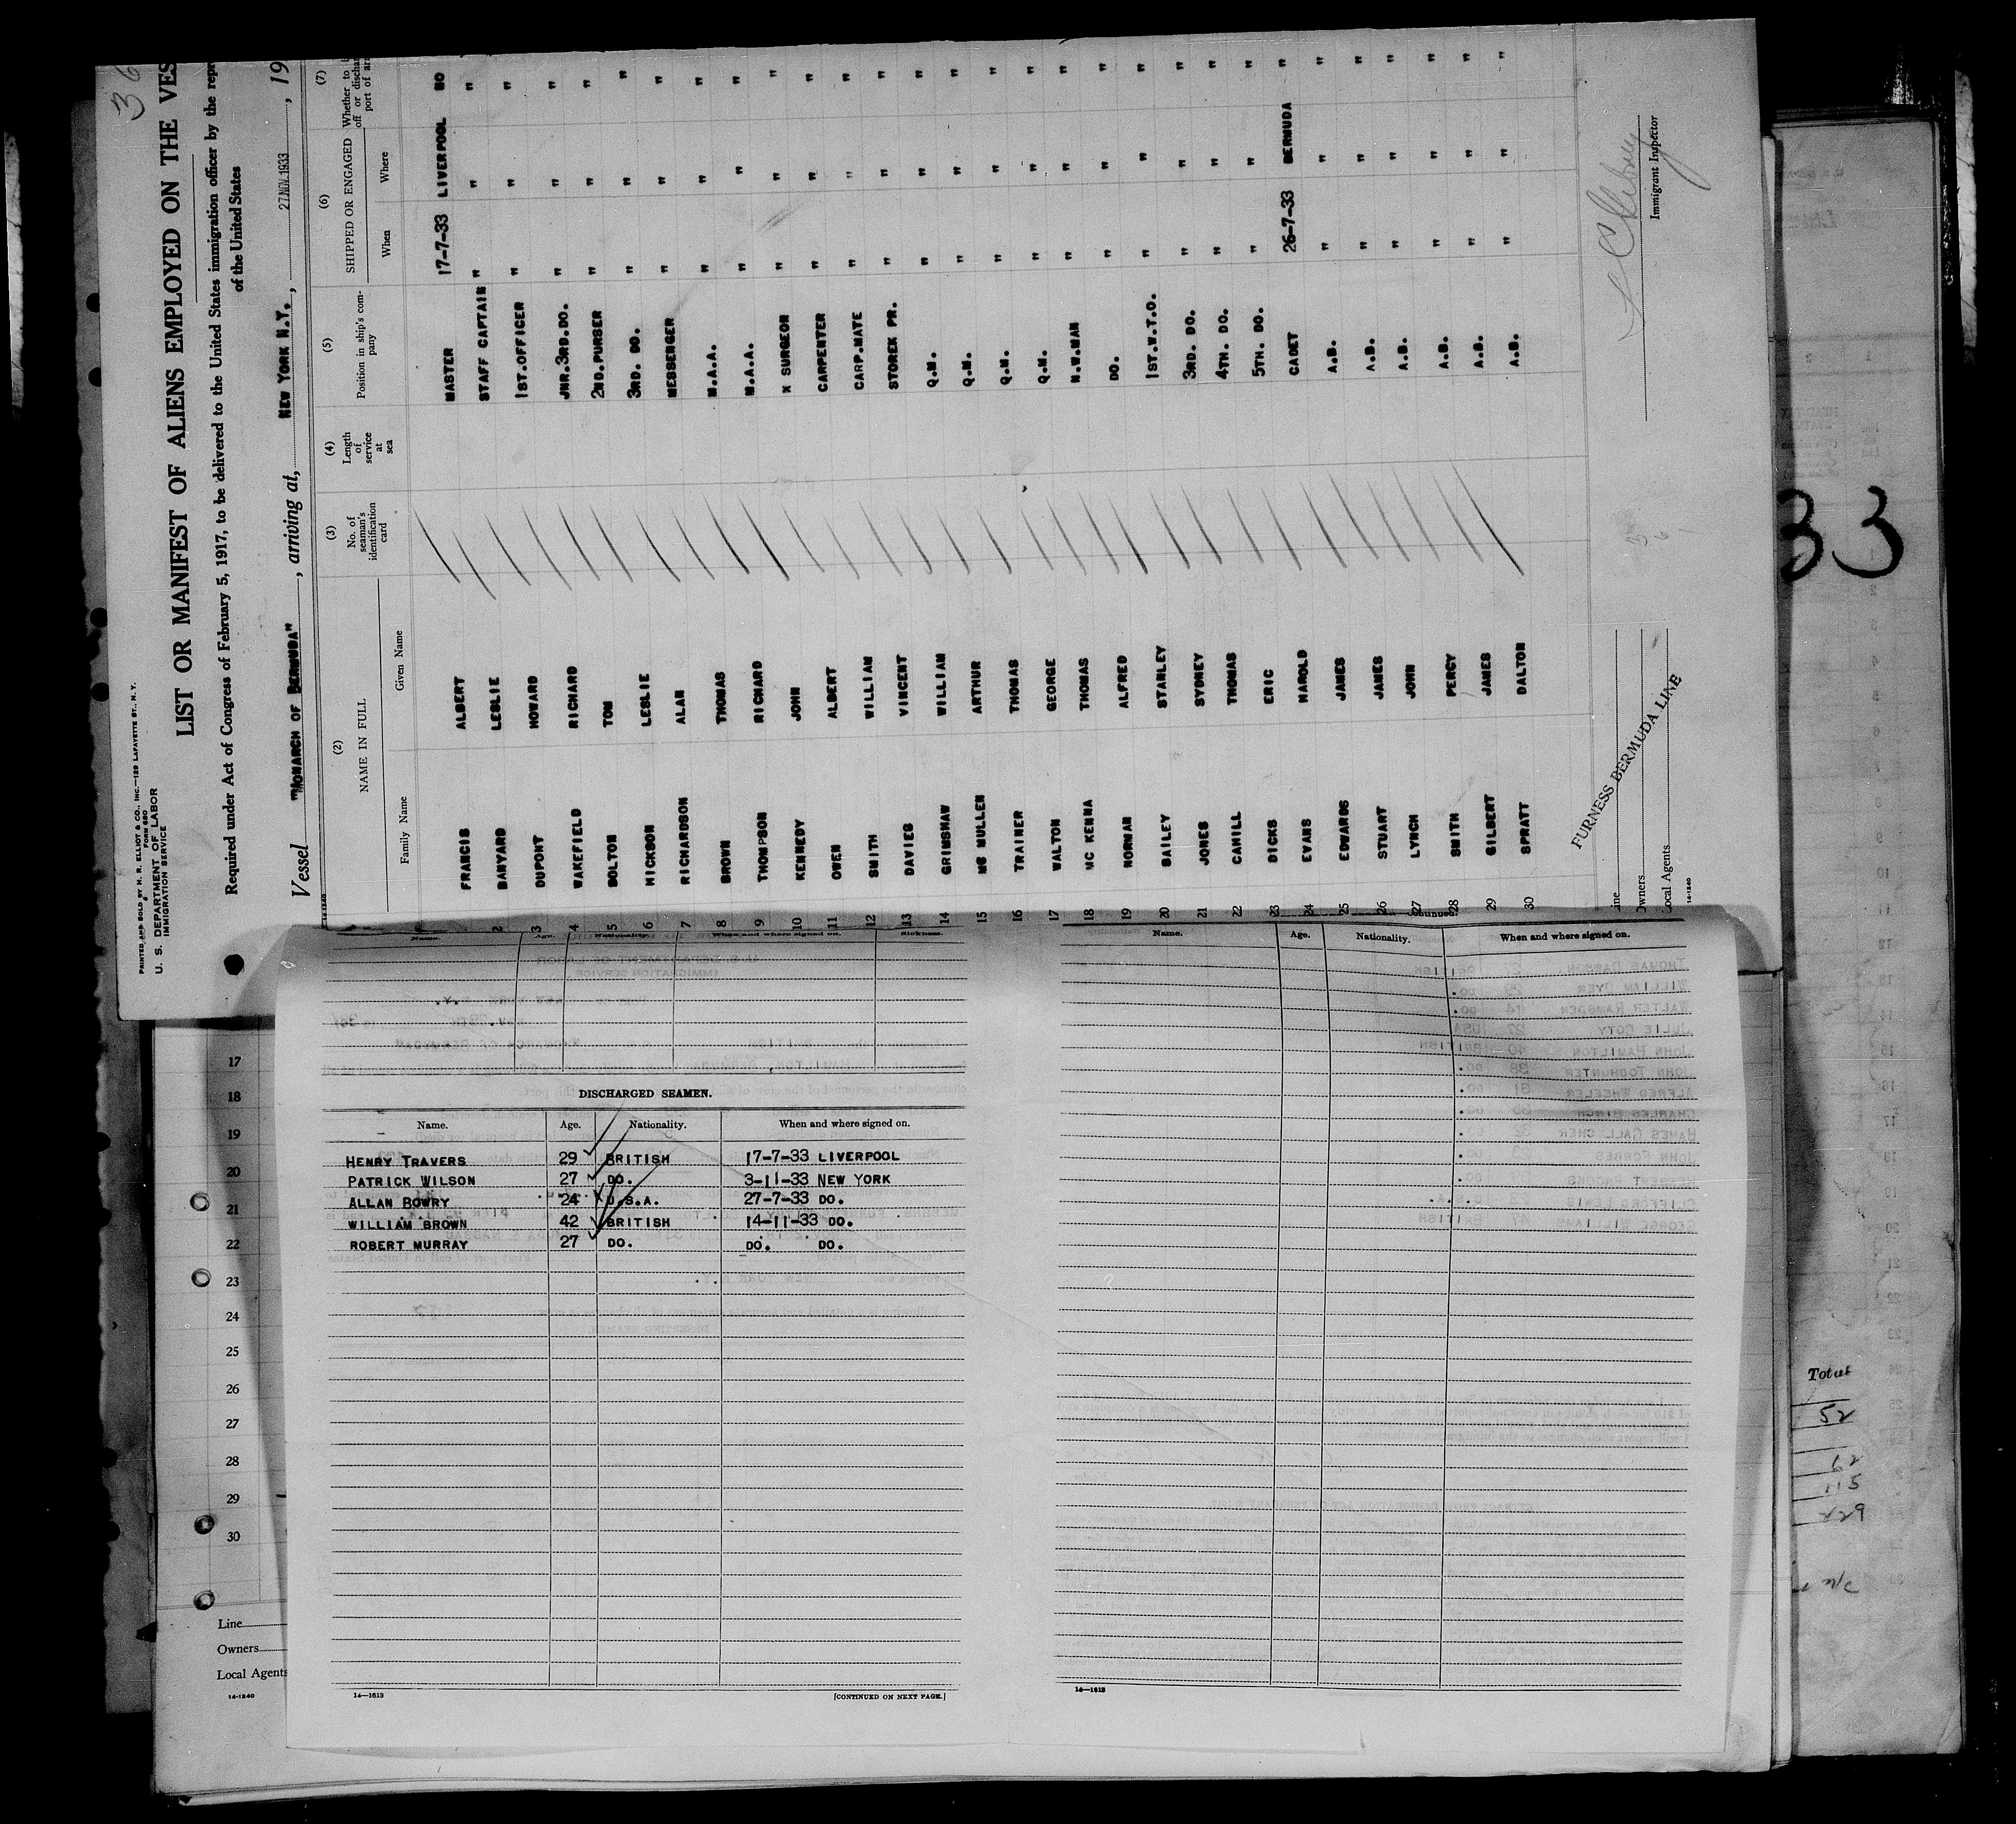 36
PRINTED AND SOLD BY M. R. ELLIOT & CO., INC.—129 LAFAYETTE ST., N. Y.
FORM 680
U. S. DEPARTMENT OF LABOR
IMMIGRATION SERVICE
LIST OR MANIFEST OF ALIENS EMPLOYED ON THE VES
Required under Act of Congress of February 5, 1917, to be delivered to the United States immigration officer by the repr
of the United States
Vessel "MONARCH OF BERMUDA", arriving at, NEW YORK N.Y., 27 NOV. 1933, 19
(2) (3) (4) (5) (6) (7)
NAME IN FULL No. of seaman's identification card Length of service at sea Position in ship's company SHIPPED OR ENGAGED Whether to
off or dischar
port of arr
Family Name Given Name When Where
FRANCIS ALBERT MASTER 17-7-33 LIVERPOOL NO
2 BANYARD LESLIE STAFF CAPTAIN " " "
3 DUPONT HOWARD 1ST.OFFICER " " "
4 WAKEFIELD RICHARD JNR.3RD.DO. " " "
5 BOLTON TOM 2ND.PURSER " " "
6 HICKSON LESLIE 3RD. DO. " " "
7 RICHARDSON ALAN MESSENGER " " "
8 BROWN THOMAS M.A.A. " " "
9 THOMPSON RICHARD M.A.A. " " "
10 KENNEDY JOHN X SURGEON " " "
11 OWEN ALBERT CARPENTER " " "
12 SMITH WILLIAM CARP.MATE " " "
13 DAVIES VINCENT STOREK PR. " " "
14 GRIMSHAW WILLIAM Q.M. " " "
15 MC MULLEN ARTHUR Q.M. " " "
16 TRAINER THOMAS Q.M. " " "
17 WALTON GEORGE Q.M. " " "
18 MC KENNA THOMAS N.W.MAN " " "
19 NORMAN ALFRED DO. " " "
20 BAILEY STANLEY 1ST.W.T.O. " " "
21 JONES SYDNEY 3RD. DO. " " "
22 CAHILL THOMAS 4TH. DO. " " "
23 DICKS ERIC 5TH. DO. " " "
24 EVANS HAROLD CADET 26-7-33 BERMUDA "
25 EDWARDS JAMES A.B. " " "
26 STUART JAMES A.B. " " "
27 LYNCH JOHN A.B. " " "
28 SMITH PERCY A.B. " " "
29 GILBERT JAMES A.B. " " "
30 SPRATT DALTON A.B. " " "
FURNESS BERMUDA LINE
ine
Owners
Local Agents
14-1240
Immigrant Inspector
33
Name. Age. Nationality. When and where signed on. Sickness.
DISCHARGED SEAMEN.
Name. Age. Nationality. When and where signed on.
HENRY TRAVERS 29 BRITISH 17-7-33 LIVERPOOL
PATRICK WILSON 27 DO. 3-11-33 NEW YORK
ALLAN BOWRY 24 U.S.A. 27-7-33 DO.
WILLIAM BROWN 42 BRITISH 14-11-33 DO.
ROBERT MURRAY 27 DO. DO. DO.
14—1613 [CONTINUED ON NEXT PAGE.]
Continued
Name. Age. Nationality. When and where signed on.
14—1613
17
18
19
20
21
22
23
24
25
26
27
28
29
30
Line
Owners
Local Agents
14-1240
Total
52
62
115
229